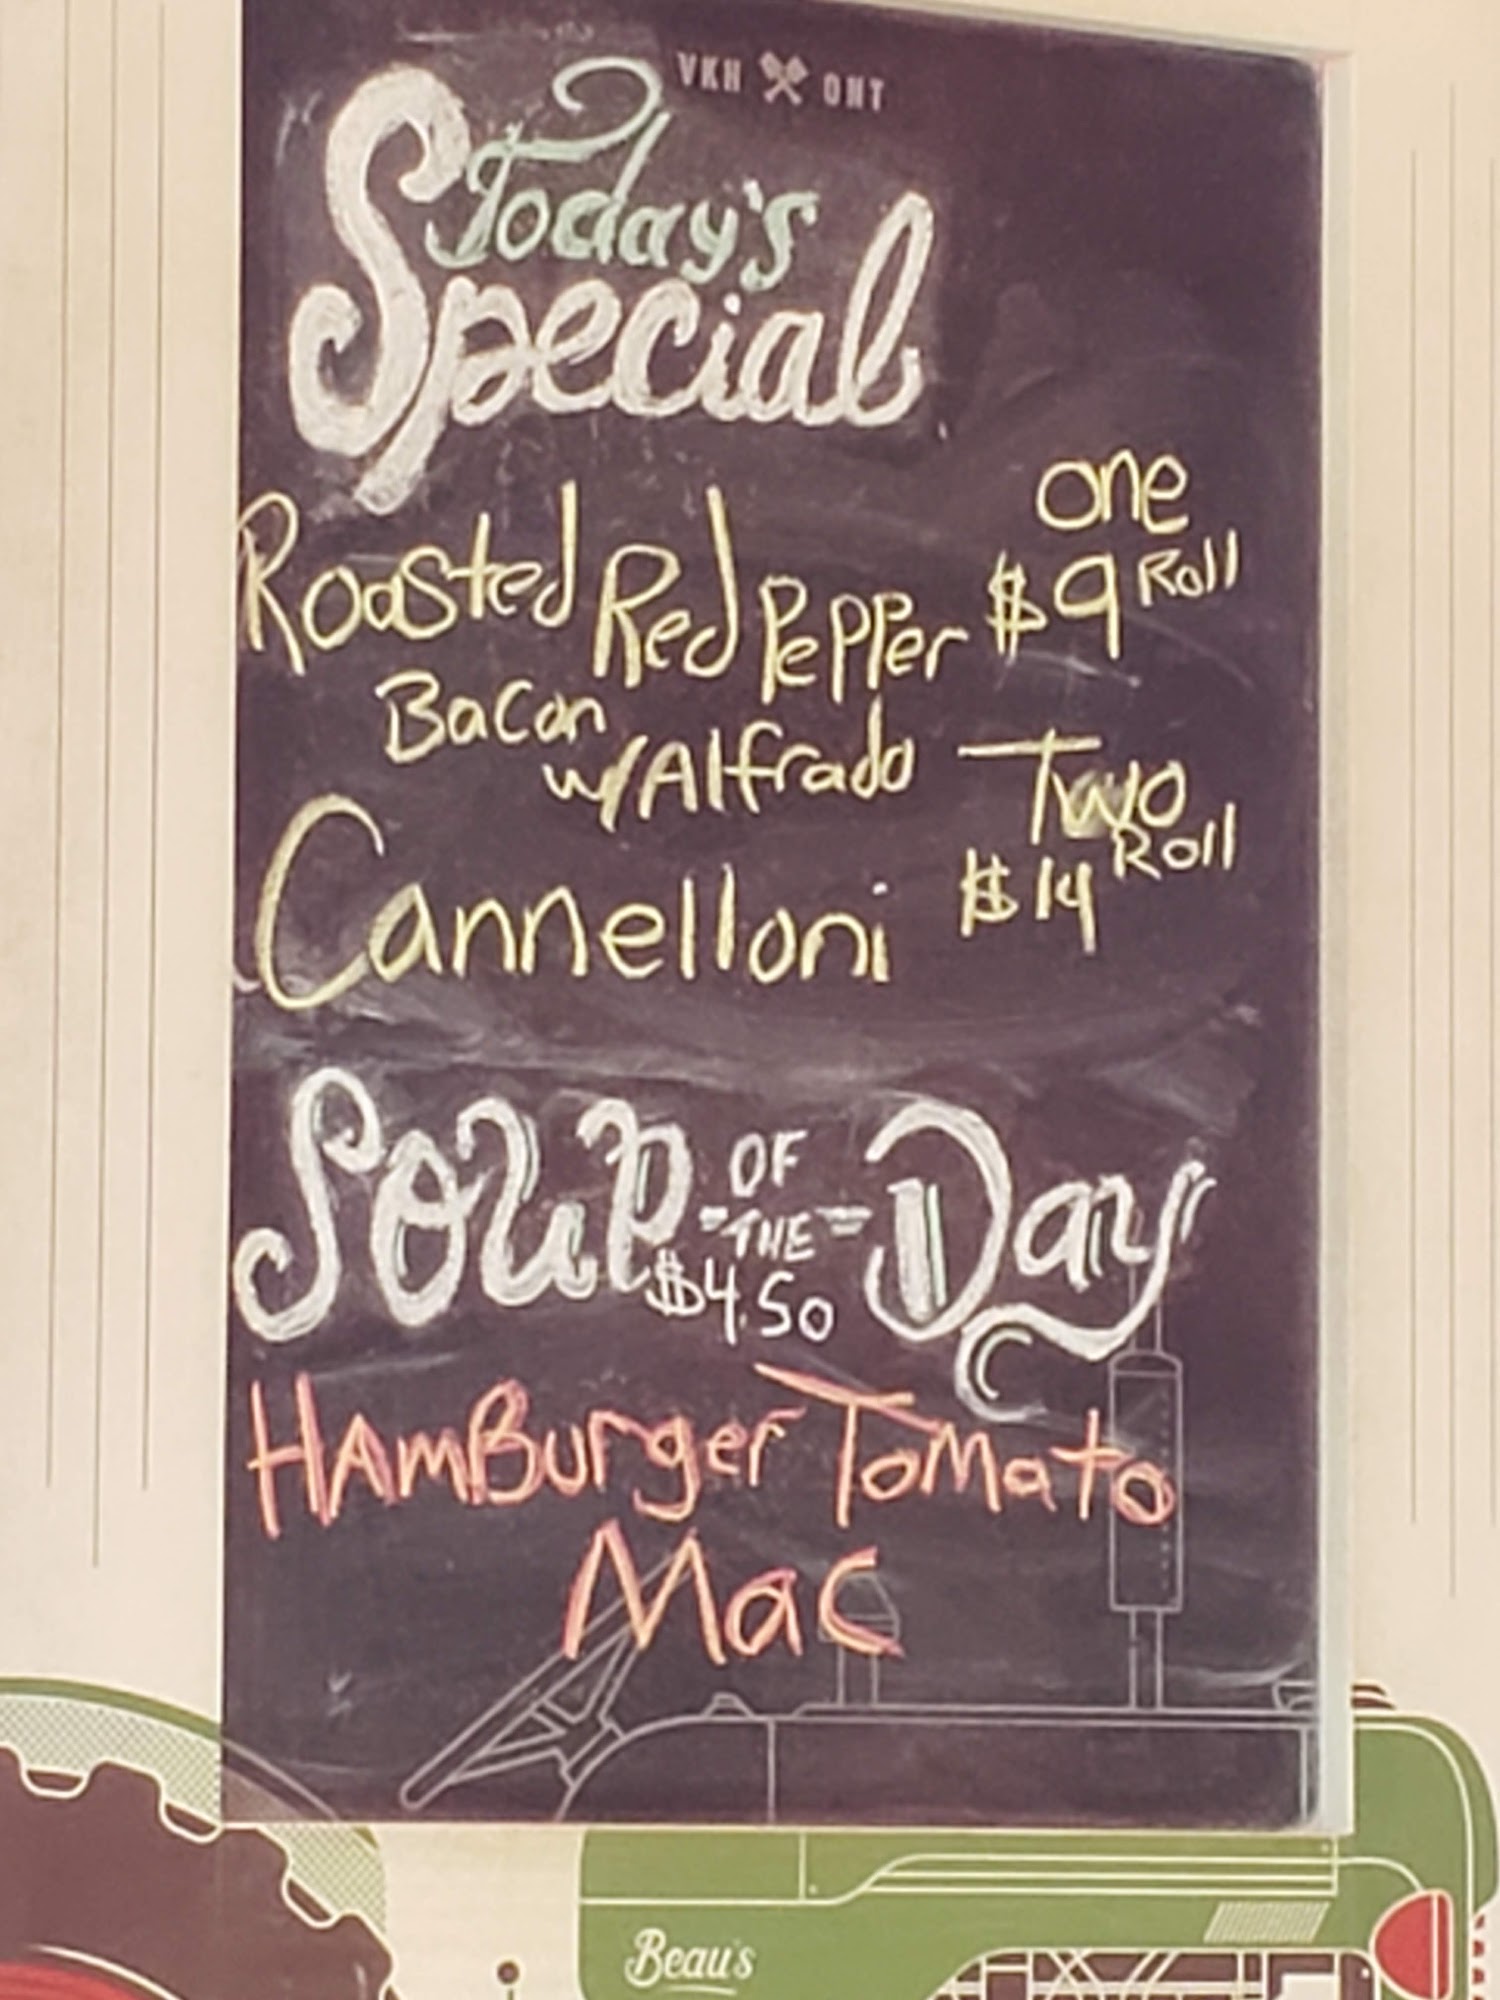 VKH ONT
Today's
Special
one
Roasted Red Pepper $9 Roll
Bacon
w/Alfrado Two
Cannelloni $14 Roll
Soup OF THE Day
$4.50
HAmBurger Tomato
Mac
Beau's